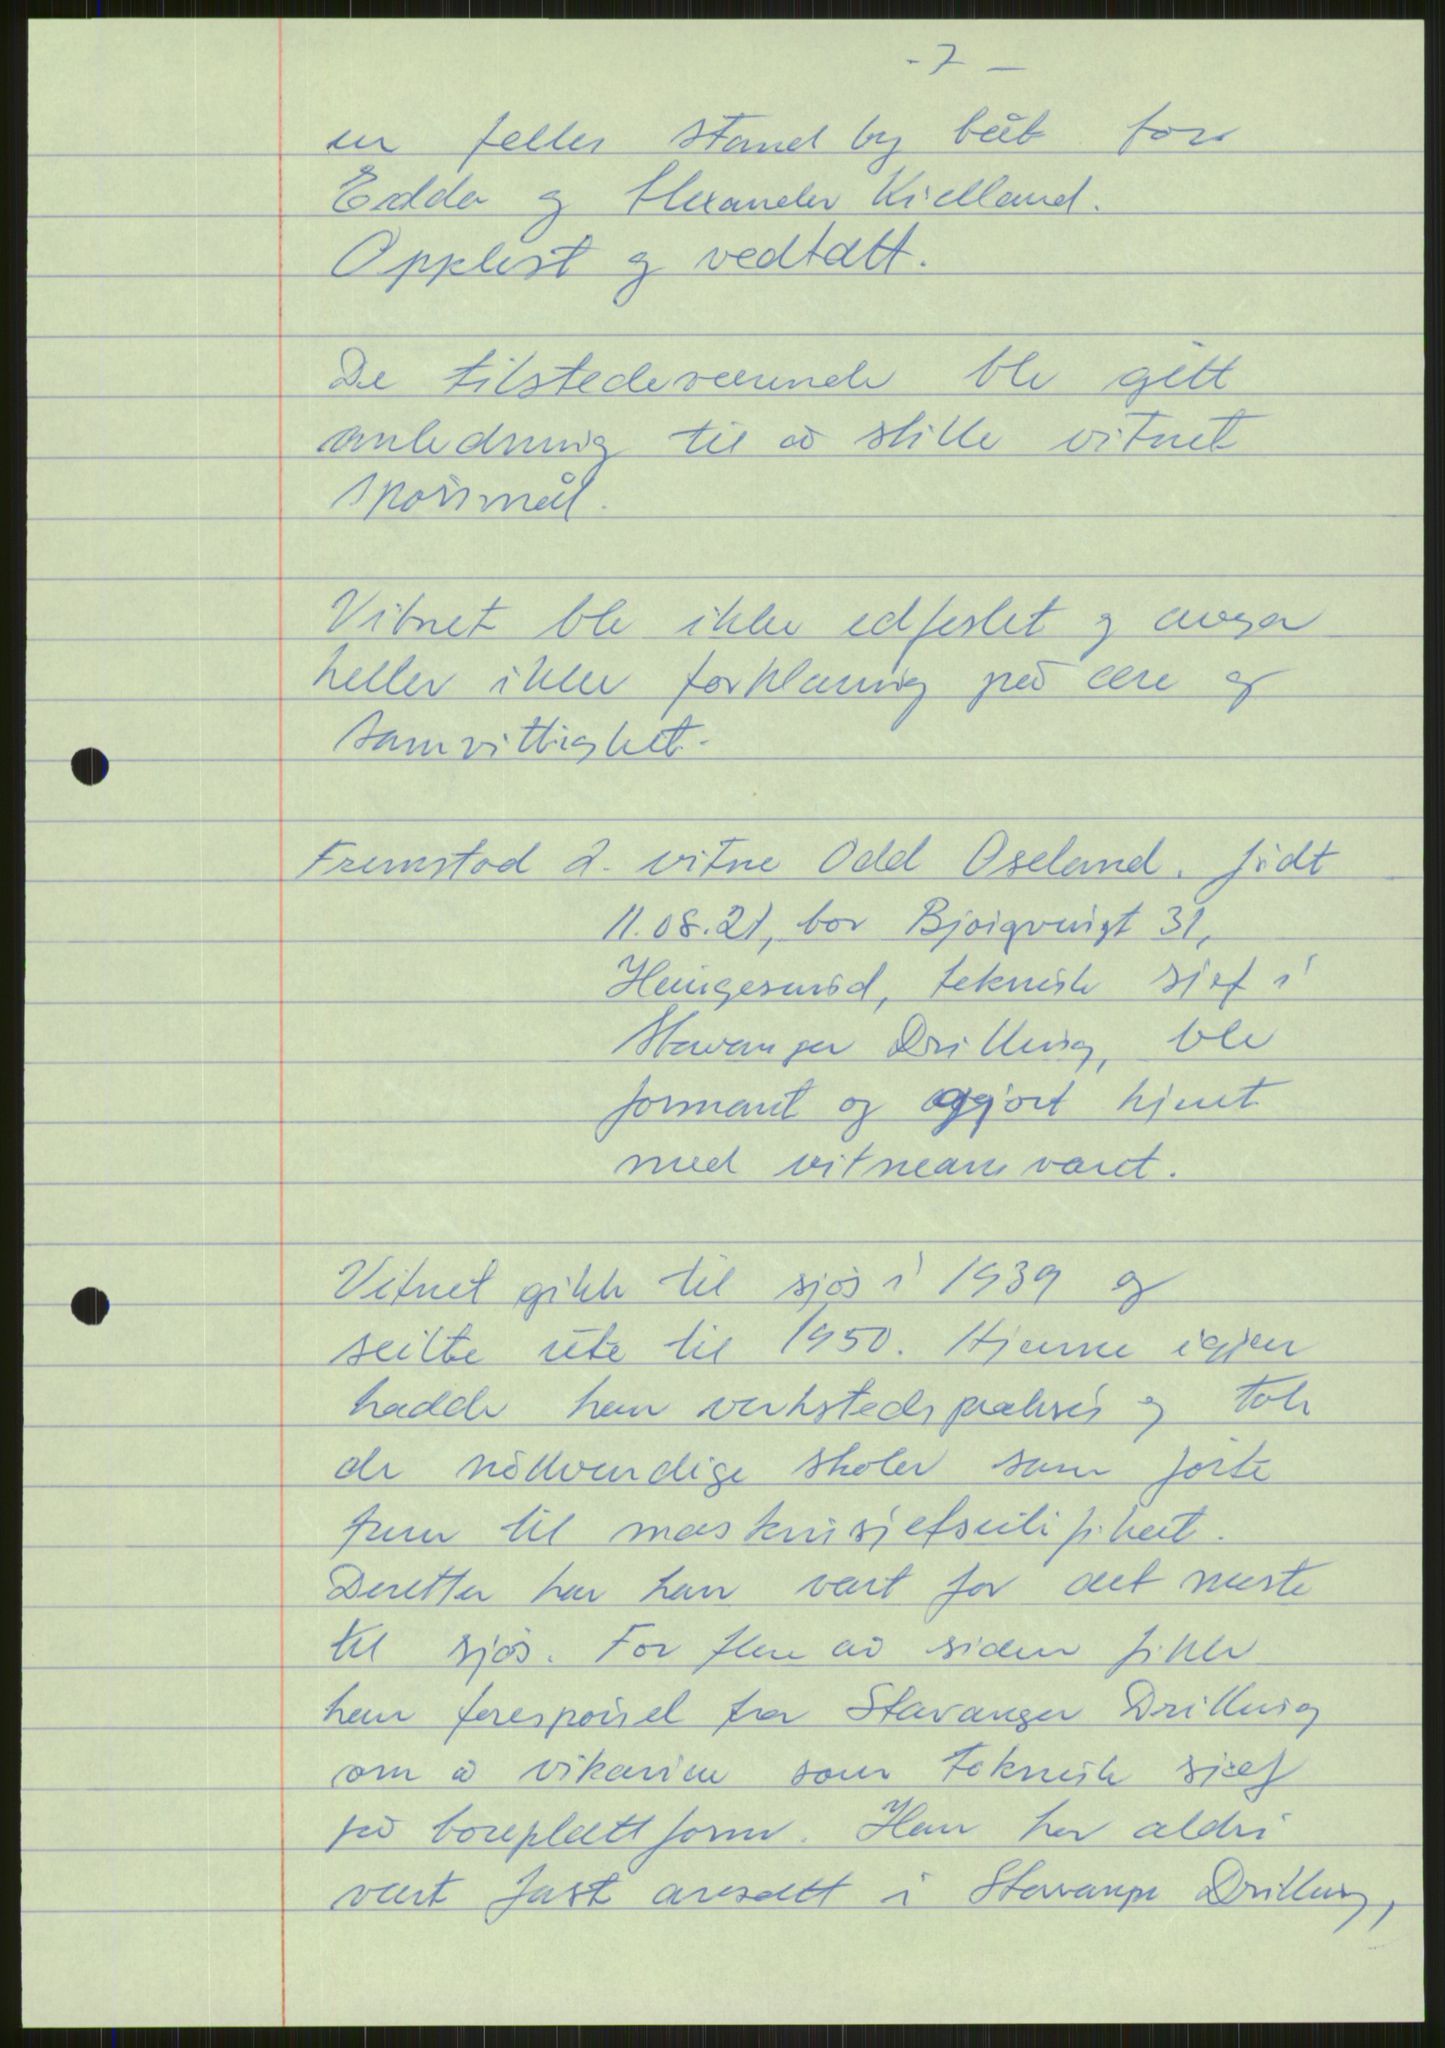 - 7 -
en felles stand by båt for
Edda og Alexander Kielland.
Opplest og vedtatt.
De tilstedeværende ble gitt
anledning til å stille vitnet
spørsmål.
Vitnet ble ikke edfestet og avga
heller ikke forklaring på ære og
samvittighet.
Fremstod 2. vitne Odd Oseland, født
11.08.21, bor 31,
Haugesund, teknisk sjef i
Stavanger Drilling, ble
formant og gjort kjent
med vitneansvaret.
Vitnet gikk til sjøs i 1939 og
seilte ute til 1950. Hjemme igjen
hadde han verkstedspraksis og tok
de nødvendige skoler som førte
frem til maskinsjefsertifikat.
Deretter har han vært for det meste
til sjøs. For flere år siden fikk
han forespørsel fra Stavanger Drilling
om å vikariere som teknisk sjef
på boreplattform. Han har aldri
vært fast ansatt i Stavanger Drilling,